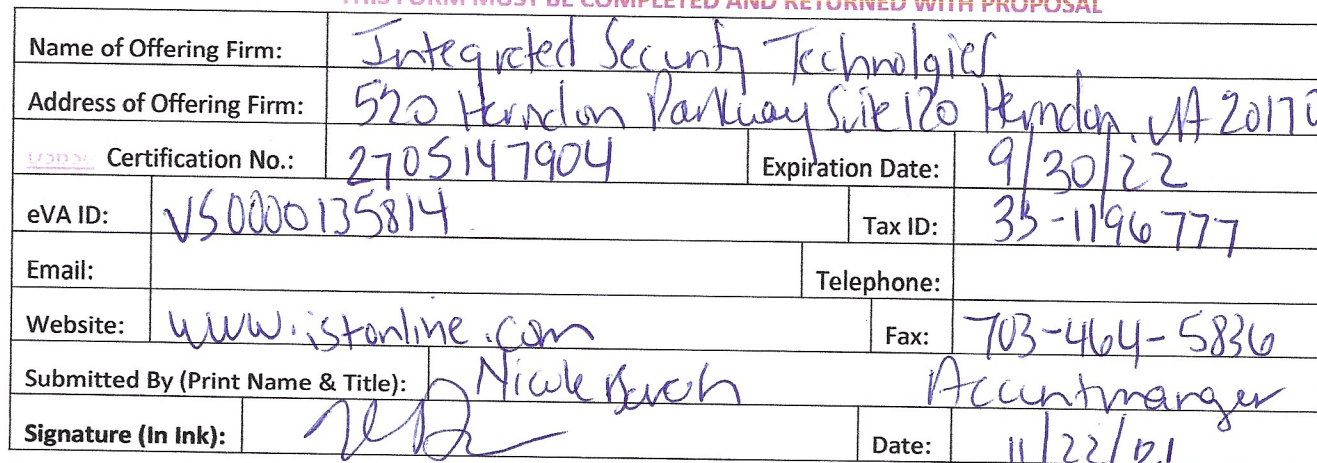 THIS FORM MUST BE COMPLETED AND RETURNED WITH PROPOSAL
Name of Offering Firm: Integrated Security Technolgies
Address of Offering Firm: 520 Herndon Parkway Suite 120 Herndon, VA 20170
Certification No.: 2705147904 Expiration Date: 9/30/22
eVA ID: VS0000135814 Tax ID: 33-1196777
Email: Telephone:
Website: www.istonline.com Fax: 703-464-5836
Submitted By (Print Name & Title): Nicole Accuntmanger
Signature (In Ink): Date: 11/22/21